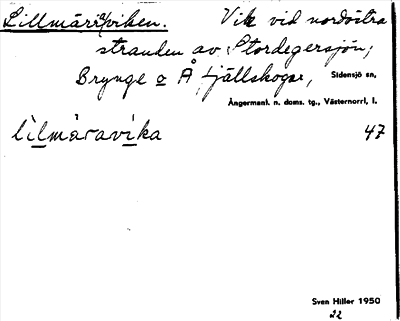 Lillmårrviken. Vik vid nordöstra
stranden av Stordegersjön;
Brynge o Å fjällskogar, Sidensjö sn,
Ångermanl. n. doms. tg., Västernorrl. l.
lilmåravika 47
Sven Hiller 1950
22